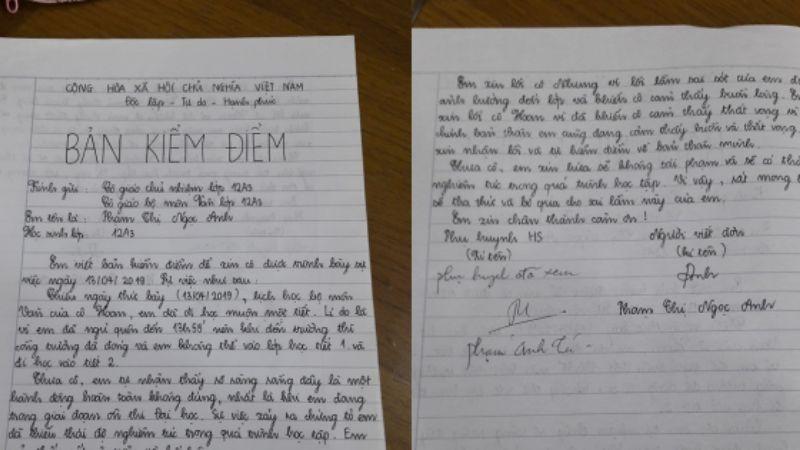 CỘNG HÒA XÃ HỘI CHỦ NGHĨA VIỆT NAM
Độc lập - Tự do - Hạnh phúc
BẢN KIỂM ĐIỂM
Kính gửi : Cô giáo chủ nhiệm lớp 12A3
Cô giáo bộ môn Văn lớp 12A3
Em tên là : Phạm Thị Ngọc Anh
Học sinh lớp : 12A3
Em viết bản kiểm điểm để xin cô được trình bày sự
việc ngày 13/04/2019. Sự việc như sau :
Chiều ngày thứ bảy (13/04/2019), lịch học bộ môn
Văn của cô Hoan, em đã đi học muộn một tiết. Lí do là
vì em đã ngủ quên đến 13h55' nên khi đến trường thì
cổng trường đã đóng và em không thể vào lớp học tiết 1 và
đi học vào tiết 2.
Thưa cô, em tự nhận thấy rõ ràng rằng đây là một
hành động hoàn toàn không đúng, nhất là khi em đang
trong giai đoạn ôn thi Đại học. Sự việc xảy ra chứng tỏ em
đã thiếu thái độ nghiêm túc trong quá trình học tập. Em
Em xin lỗi cô Nhung vì lỗi lầm sai sót của em đã
ảnh hưởng đến lớp và khiến cô cảm thấy buồn lòng. Em
xin lỗi cô Hoan vì đã khiến cô cảm thấy thất vọng vì
chính bản thân em cũng đang cảm thấy buồn và thất vọng
xin nhận lỗi và tự kiểm điểm về bản thân mình.
Thưa cô, em xin hứa sẽ không tái phạm và sẽ có thái
nghiêm túc trong quá trình học tập. Vì vậy, rất mong
sẽ tha thứ và bỏ qua cho sai lầm này của em.
Em xin chân thành cảm ơn !
Phụ huynh HS Người viết đơn
(Kí tên) (kí tên)
phụ huynh đã xem Anh
Phạm Thị Ngọc Anh
phạm Anh Tú